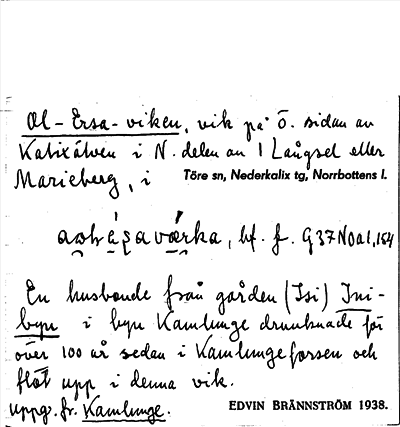 Ol-Ersa-viken, vik på Ö. sidan av
Kalixälven i N. delen av 1 Långsel eller
Marieberg, i Töre sn, Nederkalix tg, Norrbottens l.
bf. f. G37N0a1,154
En husbonde från gården (Isi) Ini-
byn i byn Kamlunge drunknade för
över 100 år sedan i Kamlungeforsen och
flöt upp i denna vik.
uppg. fr. Kamlunge. EDVIN BRÄNNSTRÖM 1938.